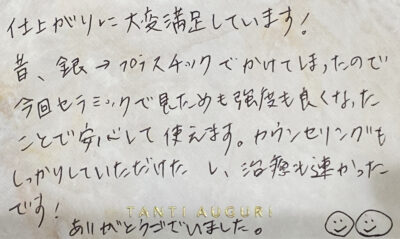 仕上がりに大変満足しています!
昔、銀→プラスチックでかけてしまったので
今回セラミックで見ためも強度も良くなった
ことで安心して使えます。カウンセリングも
しっかりしていただけたし、治療も速かった
です!
TANTI AUGURI
ありがとうございました。